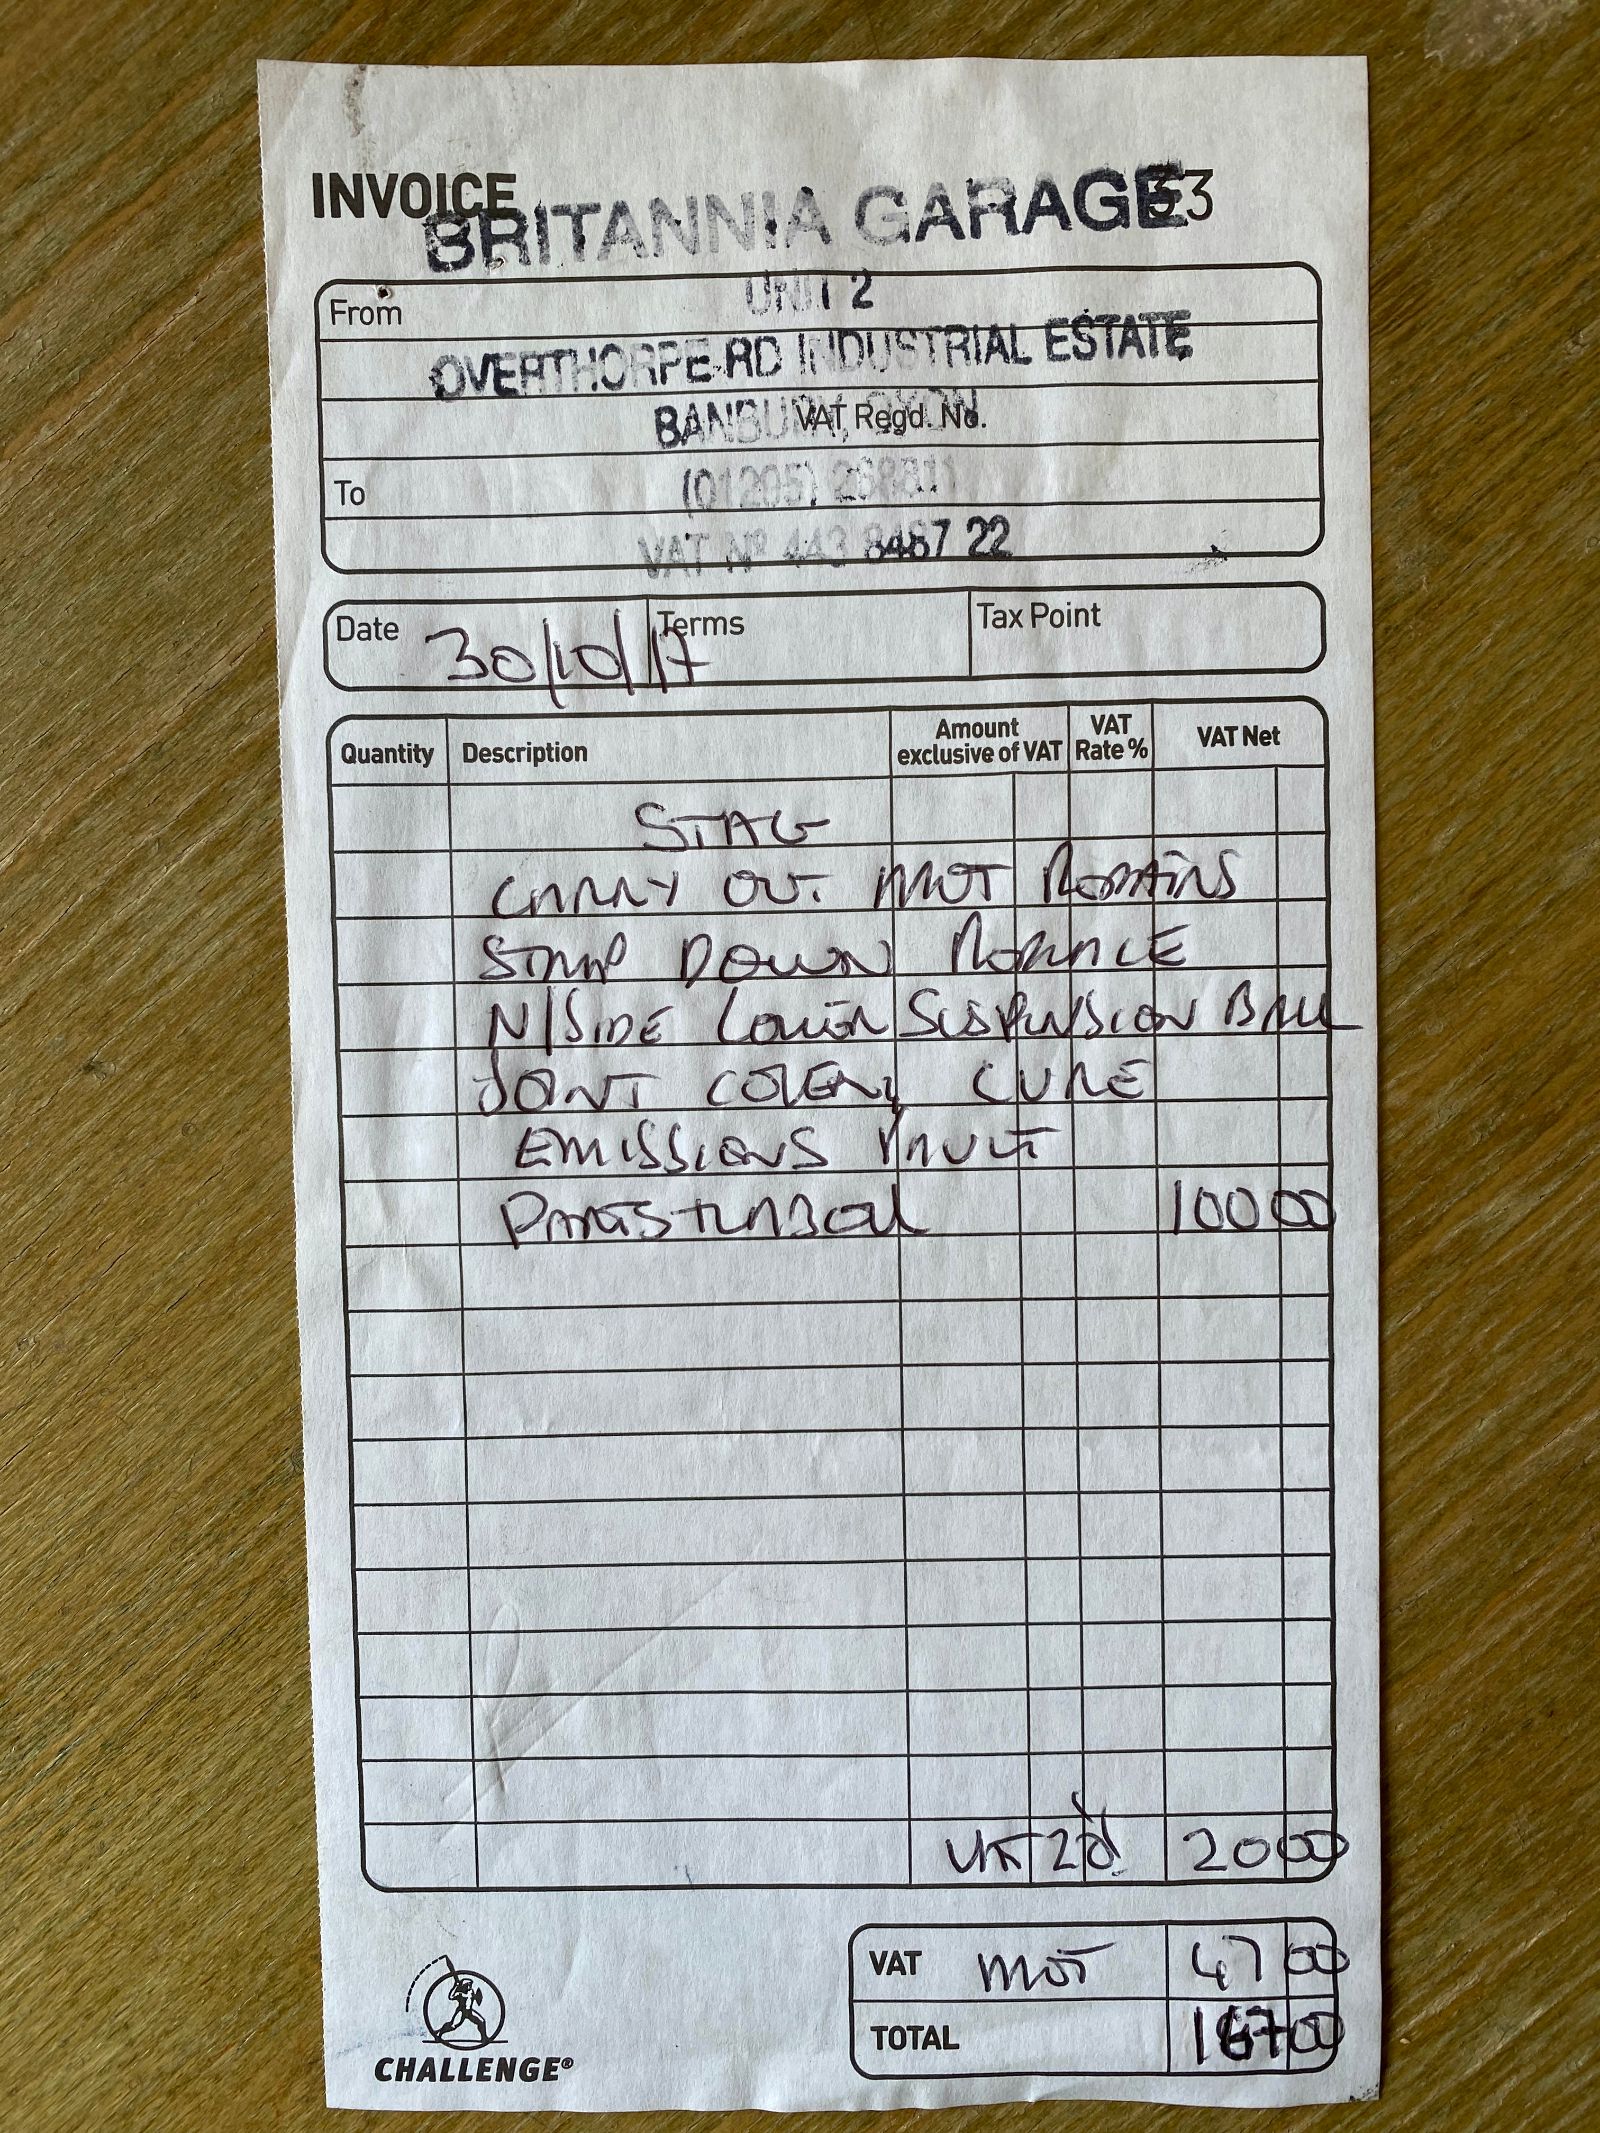 INVOICE
BRITANNIA GARAGE 33
UNIT 2
From
OVERTHORPE RD INDUSTRIAL ESTATE
BANBURY, OXON
VAT Regd. No.
To
(01295) 268811
VAT Nº 443 8487 22
Date 30/10/17 Terms Tax Point
Quantity Description Amount exclusive of VAT VAT Rate % VAT Net
STAG
CARRY OUT MOT REPAIRS
STRIP DOWN REPLACE
N/SIDE LOWER SUSPENSION BALL
JOINT COVER, CURE
EMISSIONS FAULT
PARTS + LABOUR 100 00
VAT 20 20 00
VAT MOT 47 00
TOTAL 167 00
CHALLENGE®